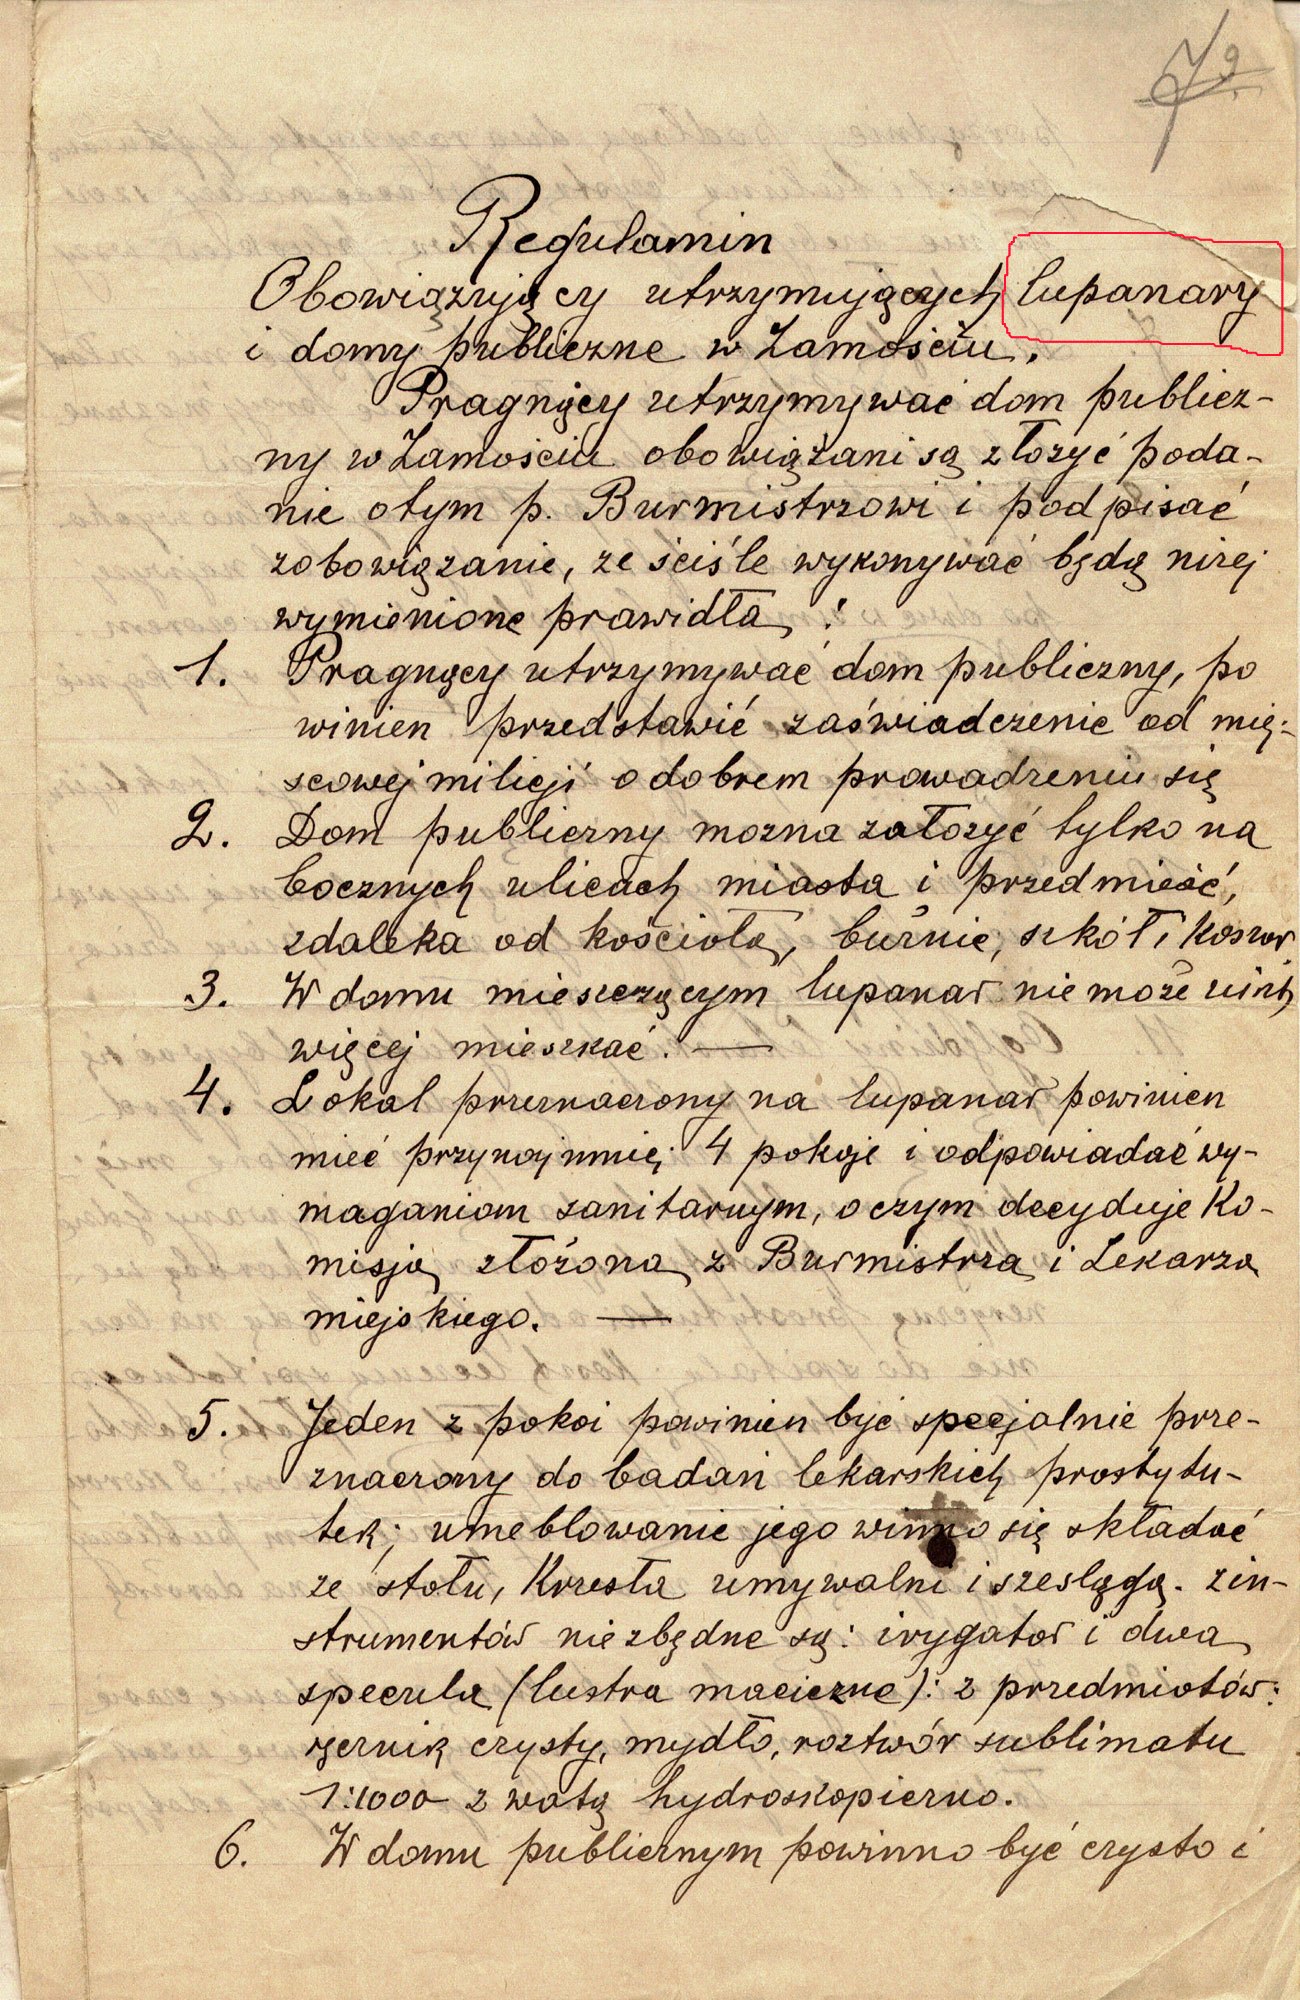 79
Regulamin
Obowiązujący utrzymujących lupanary
i domy publiczne w Zamościu.
Pragnący utrzymywać dom publicz-
ny w Zamościu obowiązani są złożyć poda-
nie otym p. Burmistrzowi i podpisać
zobowiązanie, że ściśle wykonywać będą niżej
wymienione prawidła:
1. Pragnący utrzymywać dom publiczny, po
winien przedstawić zaświadczenie od miej-
scowej milicji o dobrem prowadzeniu się
2. Dom publiczny można założyć tylko na
bocznych ulicach miasta i przedmieść,
zdaleka od kościoła, bużnic, szkół i koszar
3. W domu mieszczącym lupanar nie może nikt
więcej mieszkać. —
4. Lokal przeznaczony na lupanar powinien
mieć przynajmniej 4 pokoje i odpowiadać wy-
maganiom sanitarnym, o czym decyduje Ko-
misja złożona z Burmistrza i Lekarza
miejskiego. —
5. Jeden z pokoi powinien być specjalnie prze-
znaczony do badań lekarskich prostytu-
tek; umeblowanie jego winno się składać
ze stołu, Krzesła umywalni i szesląga. z in-
strumentów niezbędne są: irygator i dwa
specula (lustra maciczne): z przedmiotów:
ręcznik czysty, mydło, roztwór sublimatu
1:1000 z watą hydroskopiczno.
6. W domu publicznym powinno być czysto i